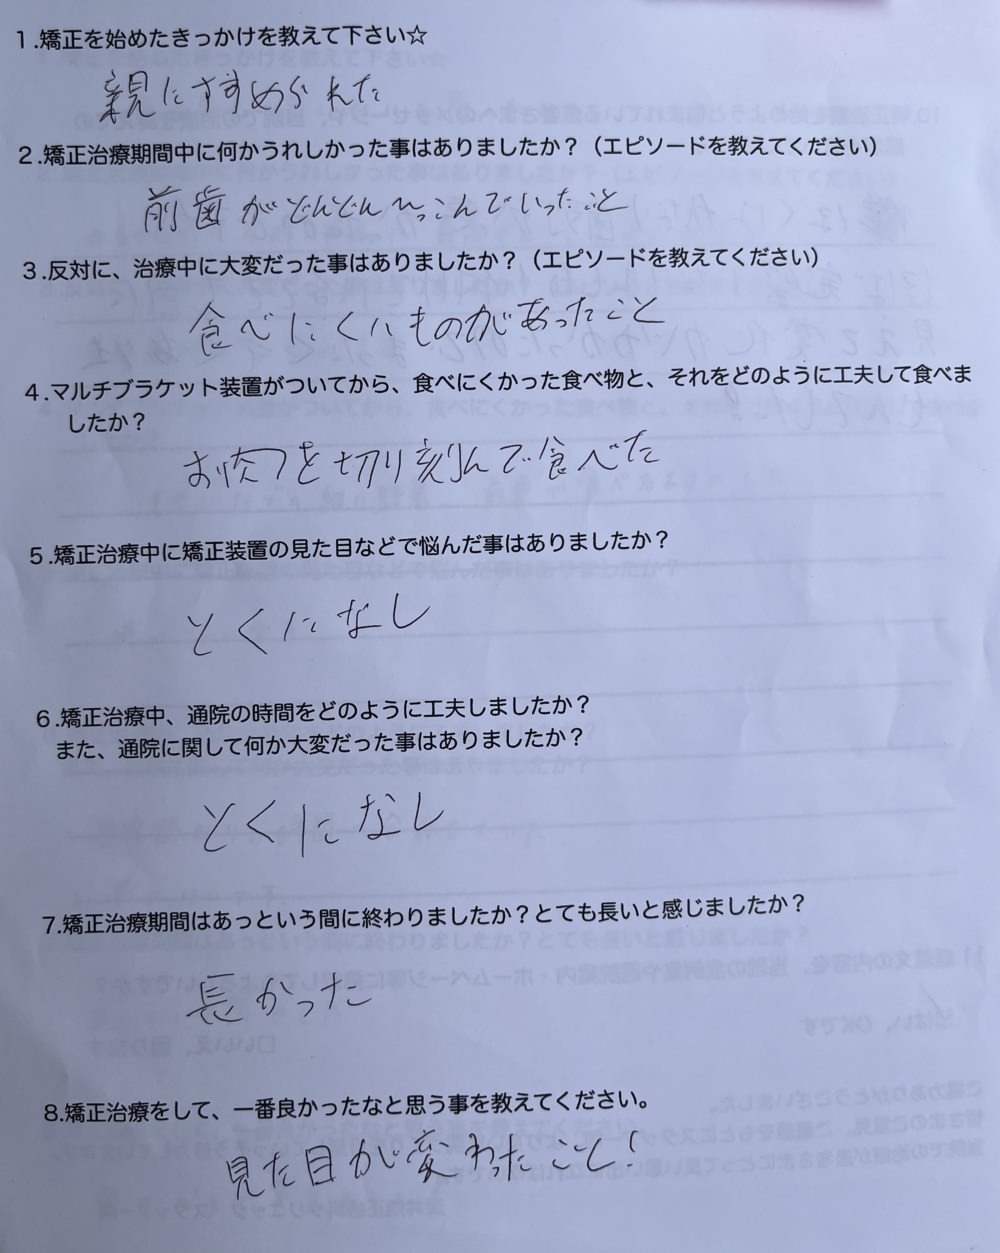 1.矯正を始めたきっかけを教えて下さい☆
親にすすめられた
2.矯正治療期間中に何かうれしかった事はありましたか？（エピソードを教えてください）
前歯がどんどんへっこんでいったこと
3.反対に、治療中に大変だった事はありましたか？（エピソードを教えてください）
食べにくいものがあったこと
4.マルチブラケット装置がついてから、食べにくかった食べ物と、それをどのように工夫して食べま
したか？
お肉を切り刻んで食べた
5.矯正治療中に矯正装置の見た目などで悩んだ事はありましたか？
とくになし
6.矯正治療中、通院の時間をどのように工夫しましたか？
また、通院に関して何か大変だった事はありましたか？
とくになし
7.矯正治療期間はあっという間に終わりましたか？とても長いと感じましたか？
長かった
8.矯正治療をして、一番良かったなと思う事を教えてください。
見た目が変わったこと！